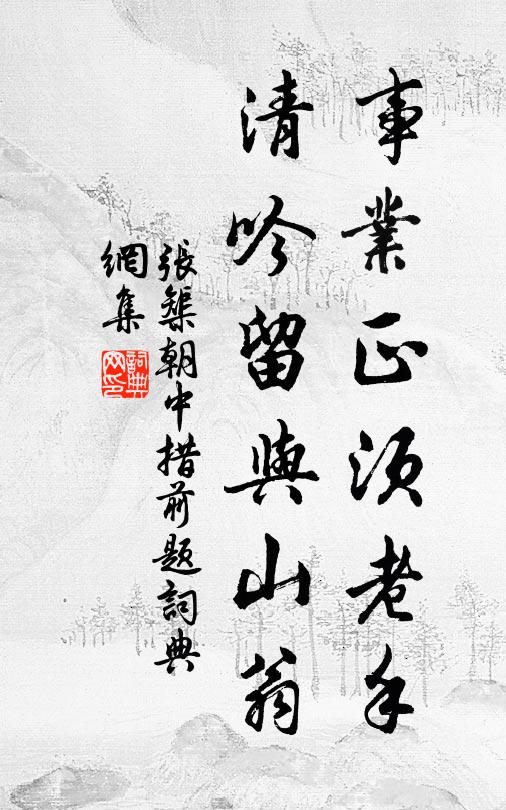 事業正須老手
清吟留與山翁
張榘朝中措前題詞典
網集
詞典
網印